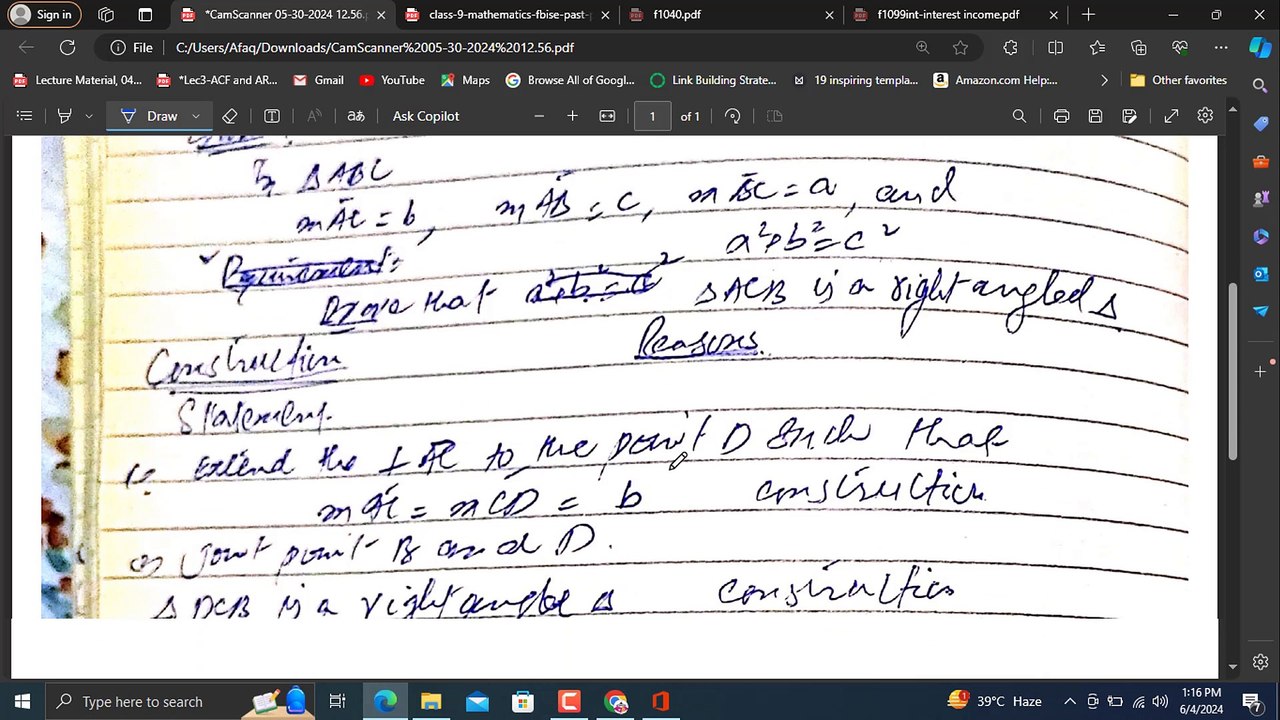 Sign in
*CamScanner 05-30-2024 12.56.p
class-9-mathematics-fbise-past-p
f1040.pdf
f1099int-interest income.pdf
File
C:/Users/Afaq/Downloads/CamScanner%2005-30-2024%2012.56.pdf
Lecture Material, 04...
*Lec3-ACF and AR...
Gmail
YouTube
Maps
Browse All of Googl...
Link Building Strate...
19 inspiring templa...
Amazon.com Help:...
Other favorites
Draw
Ask Copilot
1 of 1
In ΔABC
mAC = b, mAB = c, mBC = a, and
a²+b²=c²
Requirement:
Prove that a²+b²=c² ΔACB is a right angled Δ
Reasons.
Construction
Statement.
Extend the ⊥ AC to the point D such that
mAC = mCD = b construction
Joint point B and D.
Δ DCB is a right angle Δ construction
Type here to search
39°C Haze
1:16 PM
6/4/2024